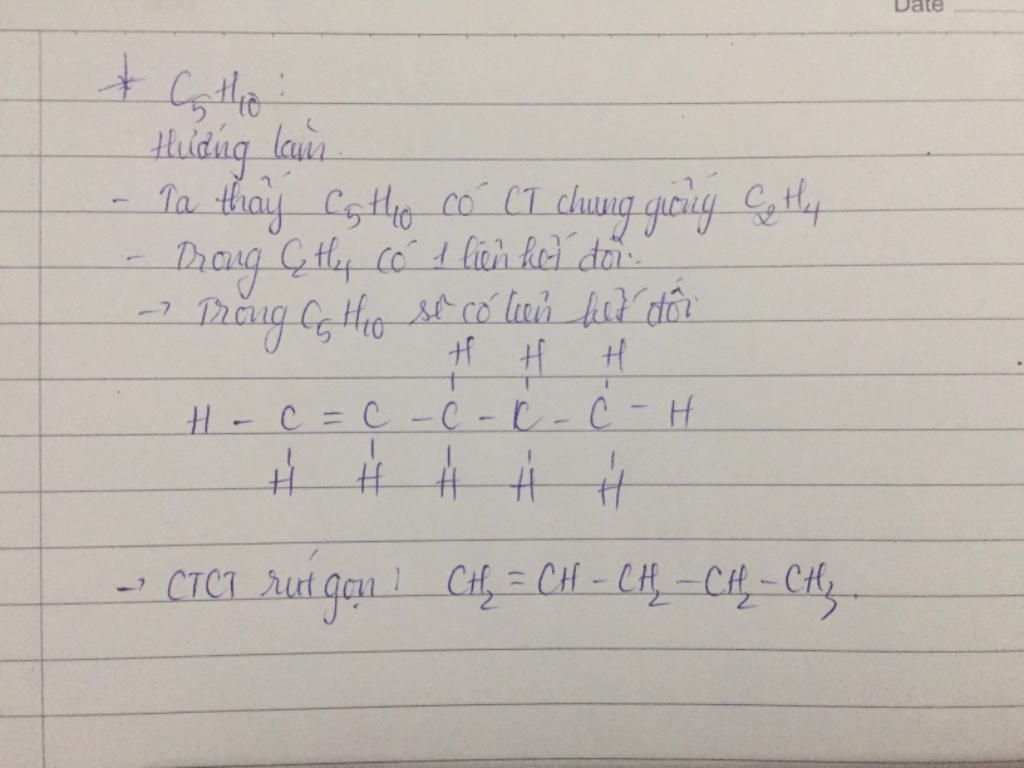 Date
* C₅H₁₀ :
Hướng làm.
- Ta thấy C₅H₁₀ có CT chung giống C₂H₄
- Trong C₂H₄ có 1 liên kết đôi.
→ Trong C₅H₁₀ sẽ có liên kết đôi
H H H
H - C = C - C - C - C - H
H H H H H
→ CTCT rút gọn : CH₂ = CH - CH₂ - CH₂ - CH₃.